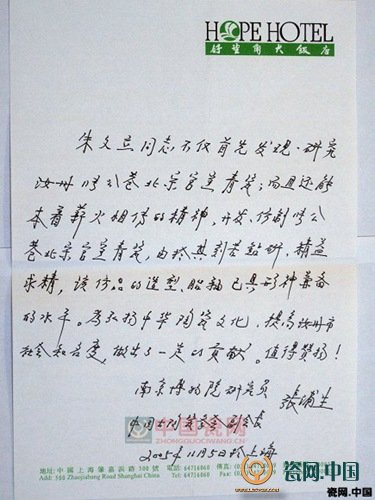 HOPE HOTEL
好望角大飯店
朱文立同志不仅首先发现、研究
汝州张公巷北宋官窑青瓷;而且还能
本着薪火相传的精神,开发、仿制张公
巷北宋官窑青瓷,由於其刻苦钻研,精益
求精,该仿品的造型、胎釉已具形神兼备
的水平。为弘扬中华陶瓷文化,提高汝州市
社会知名度,做出了一定的贡献。值得赞扬!
南京博物院研究员 張浦生
中国古陶瓷学会副会长
2005年11月5日於上海
中国瓷网
地址:中國上海肇嘉浜路500號 電話:64716060
Add: 500 Zhaojiabang Road Shanghai China Tel: 64716060
瓷网.中国
瓷网.中国